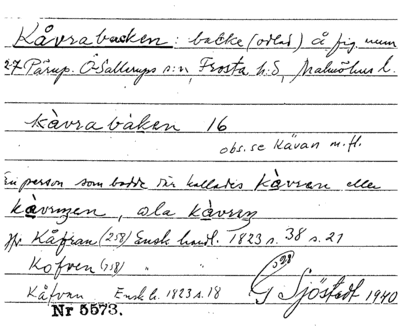 Kåvrabacken: backe (odlad) å fig. num
27 Pärup. Ö Sallerups s:n, Frosta h:d, Malmöhus l.
kàvrabàken 16
obs. se Kävan m.fl.
En person som bodde där kallades kàvran eller
kàvringen, ola kàvren
Jfr Kåfran (258) Ensk handl. 1823 s. 38 s. 21
Kofven (258) " "
Kåfvan Ensk h. 1823 s. 18
G Sjöstedt 1940
Nr 5573.